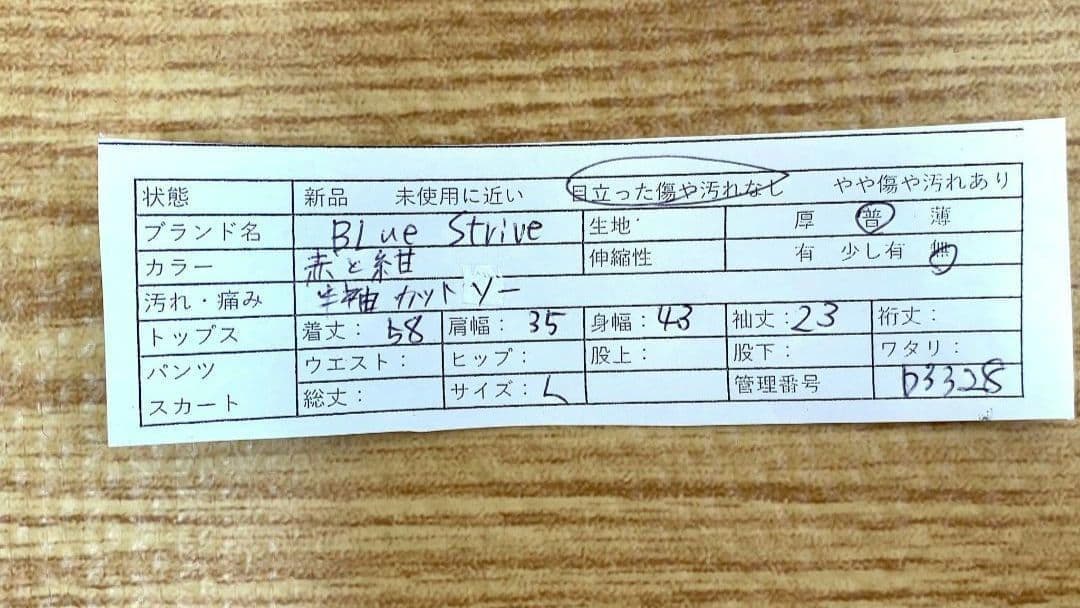 状態 新品 未使用に近い 目立った傷や汚れなし やや傷や汚れあり
ブランド名 BLue Strive 生地 厚 普 薄
カラー 赤と紺 伸縮性 有 少し有 無
汚れ・痛み 半袖カットソー
トップス 着丈: 58 肩幅: 35 身幅: 43 袖丈: 23 裄丈:
パンツ ウエスト: ヒップ: 股上: 股下: ワタリ:
スカート 総丈: サイズ: L 管理番号 b3328